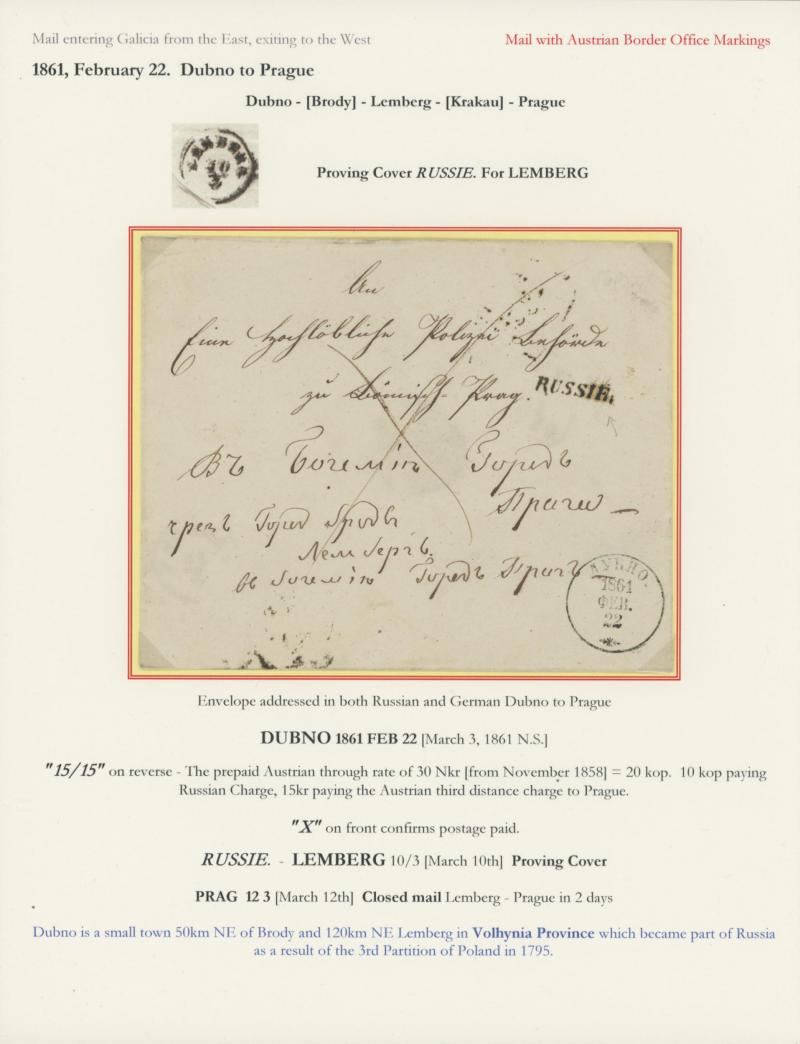 Mail entering Galicia from the East, exiting to the West
Mail with Austrian Border Office Markings
1861, February 22. Dubno to Prague
Dubno - [Brody] - Lemberg - [Krakau] - Prague
LEMBERG
10
3
Proving Cover RUSSIE. For LEMBERG
An
Eine Hochlöbliche Polizei Behörde
zu Bömisch-Prag.
RUSSIE.
Въ Богемію Городъ
Прагу
чрезъ Город Бродъ
Лембергъ.
въ Богемію Городъ Прагъ
ДУБНО.
1861
ФЕВ.
22
Envelope addressed in both Russian and German Dubno to Prague
DUBNO 1861 FEB 22 [March 3, 1861 N.S.]
"15/15" on reverse - The prepaid Austrian through rate of 30 Nkr [from November 1858] = 20 kop. 10 kop paying
Russian Charge, 15kr paying the Austrian third distance charge to Prague.
"X" on front confirms postage paid.
RUSSIE. - LEMBERG 10/3 [March 10th] Proving Cover
PRAG 12 3 [March 12th] Closed mail Lemberg - Prague in 2 days
Dubno is a small town 50km NE of Brody and 120km NE Lemberg in Volhynia Province which became part of Russia
as a result of the 3rd Partition of Poland in 1795.